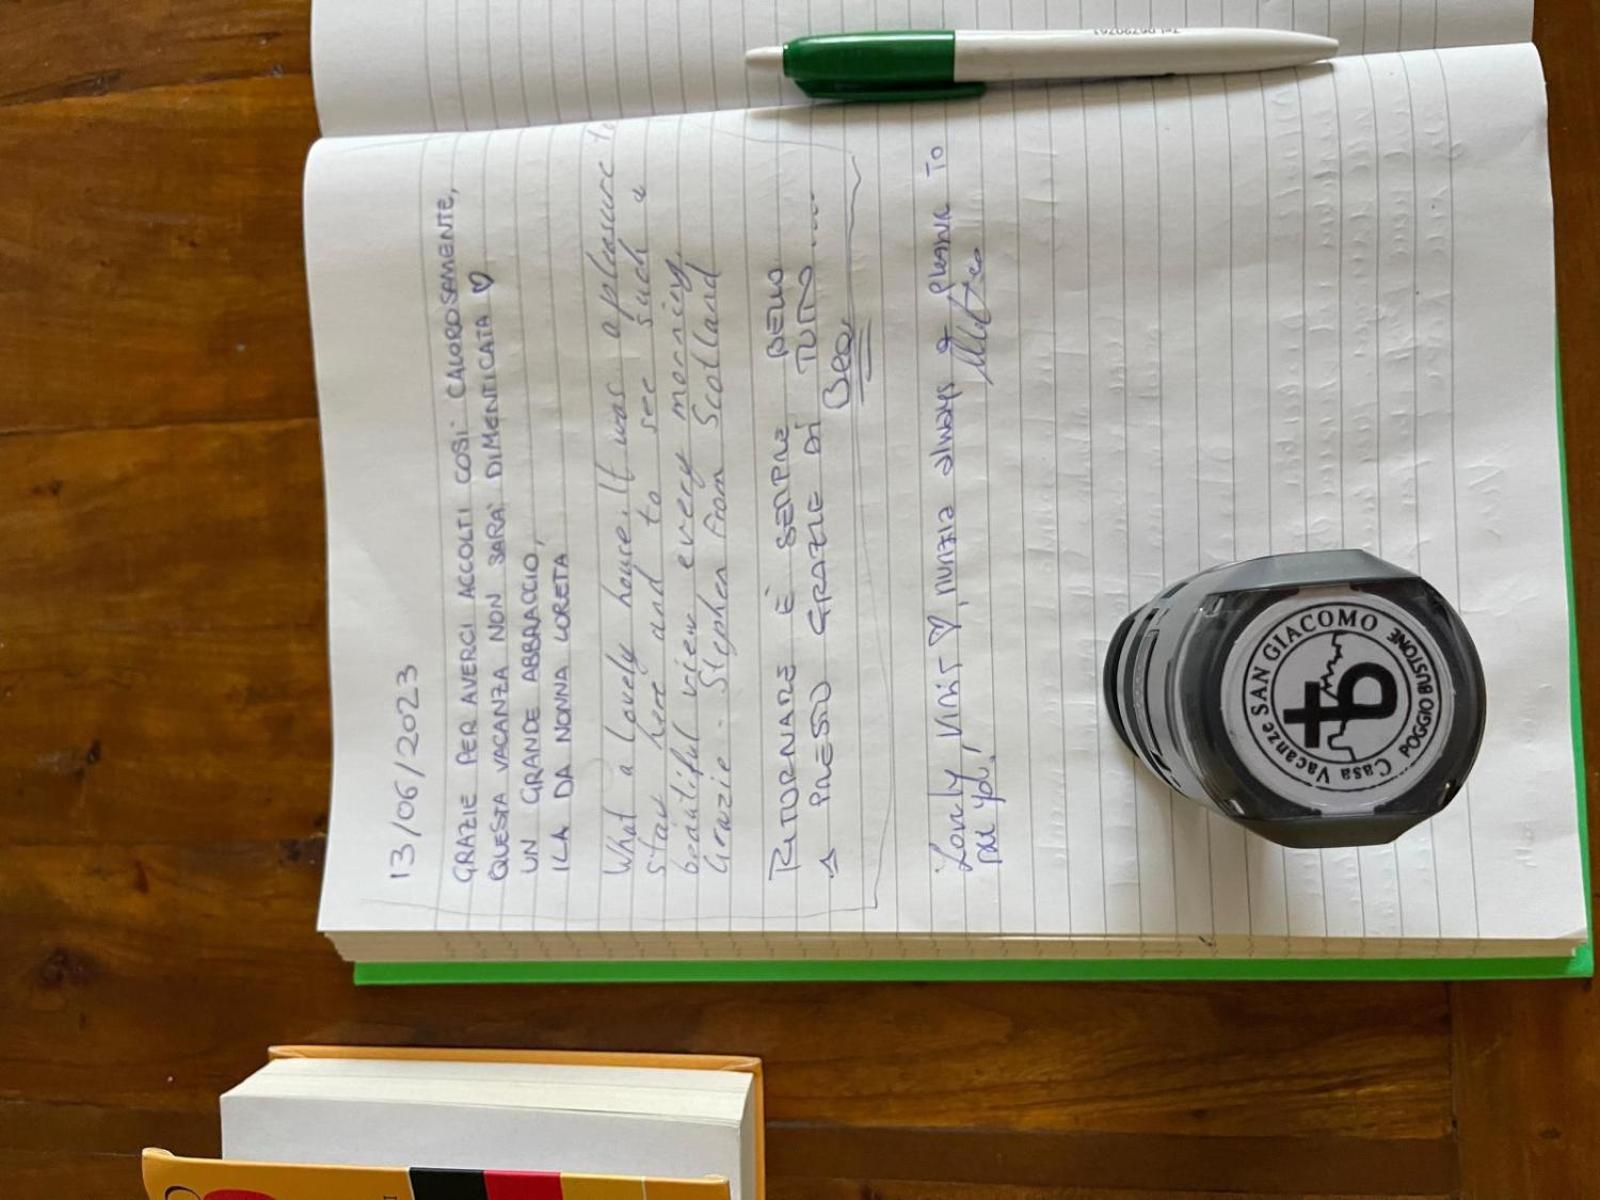 13/06/2023
GRAZIE PER AVERCI ACCOLTI COSÌ CALOROSAMENTE,
QUESTA VACANZA NON SARA' DIMENTICATA ♡
UN GRANDE ABBRACCIO,
ILA DA NONNA LORETA
What a lovely house. It was a pleasure to
stay here and to see such a
beautiful view every morning.
Grazie - Stephen from Scotland
RITORNARE È SEMPRE BELLO
PRESTO GRAZIE DI TUTTO....
Lovely visit ♡, nunzia always a to
you!
Casa Vacanze SAN GIACOMO
POGGIO BUSTONE
Tel.06790761